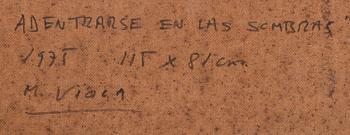 ADENTRARSE EN LAS SOMBRAS"
1975 115 x 81 cm.
M. VIOLA